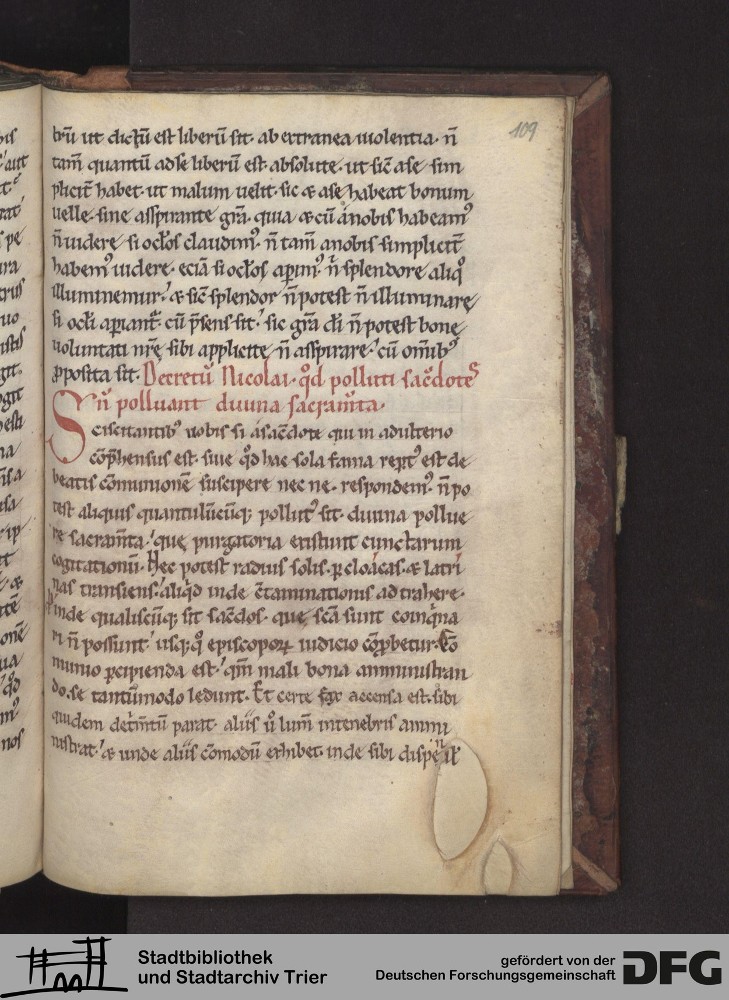 109
brū ut dictū est liberū sit. ab extranea uiolentia. n̄
tam̄ quantū ad se liberū est absolute. ut sic̄ a se sim
plicit̄ habet. ut malum uelit. sic & a se habeat bonum
uelle. sine asspirante gr̄a. quia & cū a nobis habeam᾽
n̄ uidere si oc̄los claudim᾽. n̄ tam̄ a nobis simplicit̄
habem᾽ uidere. eciā si oc̄los aperim᾽. n̄ splendore aliq᾽
illuminemur. & sic̄ splendor n̄ potest n̄ illuminare
si oc̄li apiant̄. cū p̄sens sit. sic gr̄a d̄i n̄ potest bonę
uoluntati nr̄ę sibi applicite n̄ asspirare. cū omīb᾽
ꝓposita sit. Decretū Nicolai. q̄d polluti sac̄dotes
n̄ polluant diuina sacram̄ta.
Sciscitantib᾽ uobis si a sac̄dote qui in adulterio
cōp̄hensus est. siue q̄d hac sola fama resp̄s᾽ est de
beatis cōmunionē suscipere nec ne. respondem᾽. n̄ po
test aliquis quantulūcūq; pollut᾽ sit. diuina pollue
re sacram̄ta. quę purgatoria existunt cunctarum
cogitationū. Nec potest radius solis. ꝑ cloacas. & latri
nas transiens. aliq̄d inde c̄taminationis adtrahere.
Inde qualiscūq; sit sac̄dos. quę sc̄a sunt coinq̄na
ri n̄ possunt. usq; q᾽ episcopoꝝ iudicio cōp̄betur. Co
munio ꝑcipienda est. qm̄ mali bona amministran
do. se tantūmodo ledunt. Et certe fax accensa est. sibi
quidem detrim̄tū parat. aliis u᾽ lum̄ in tenebris ammi
nistrat. & unde aliis cōmodū exhibet. inde sibi
Stadtbibliothek
und Stadtarchiv Trier
gefördert von der
Deutschen Forschungsgemeinschaft
DFG